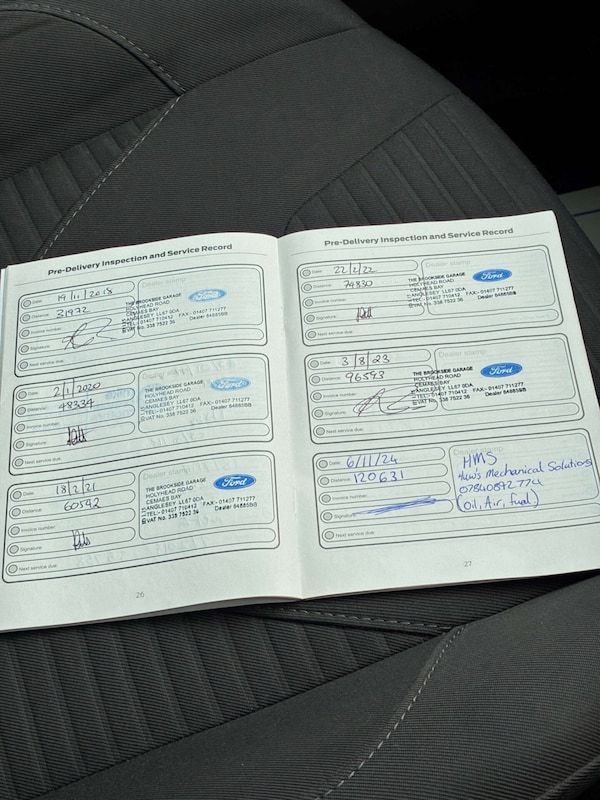 Pre-Delivery Inspection and Service Record
Date: 19/11/2018
Distance: 31972
Invoice number:
Signature:
Next service due:
Dealer stamp
THE BROOKSIDE GARAGE
HOLYHEAD ROAD
CEMAES BAY
ANGLESEY LL67 0DA
TEL:- 01407 710412 FAX:- 01407 711277
VAT No. 338 7522 36 Dealer 64885BB
Ford
Date: 2/1/2020
Distance: 48334
Invoice number:
Signature:
Next service due:
THE BROOKSIDE GARAGE
HOLYHEAD ROAD
CEMAES BAY
ANGLESEY LL67 0DA
TEL:- 01407 710412 FAX:- 01407 711277
VAT No. 338 7522 36 Dealer 64885BB
Ford
Date: 18/2/21
Distance: 60542
Invoice number:
Signature:
Next service due:
Dealer stamp
THE BROOKSIDE GARAGE
HOLYHEAD ROAD
CEMAES BAY
ANGLESEY LL67 0DA
TEL:- 01407 710412 FAX:- 01407 711277
VAT No. 338 7522 36 Dealer 64885BB
Ford
26
Pre-Delivery Inspection and Service Record
Date: 22/2/22
Distance: 74830
Invoice number:
Signature:
Next service due:
Dealer stamp
THE BROOKSIDE GARAGE
HOLYHEAD ROAD
CEMAES BAY
ANGLESEY LL67 0DA
TEL:- 01407 710412 FAX:- 01407 711277
VAT No. 338 7522 36 Dealer 64885BB
Ford
Date: 3/8/23
Distance: 96593
Invoice number:
Signature:
Next service due:
Dealer stamp
THE BROOKSIDE GARAGE
HOLYHEAD ROAD
CEMAES BAY
ANGLESEY LL67 0DA
TEL:- 01407 710412 FAX:- 01407 711277
VAT No. 338 7522 36 Dealer 64885BB
Ford
Date: 6/11/24
Distance: 120631
Invoice number:
Signature:
Next service due:
Dealer stamp
HMS
Huw's Mechanical Solutions
07840842774
(oil, Air, fuel)
27